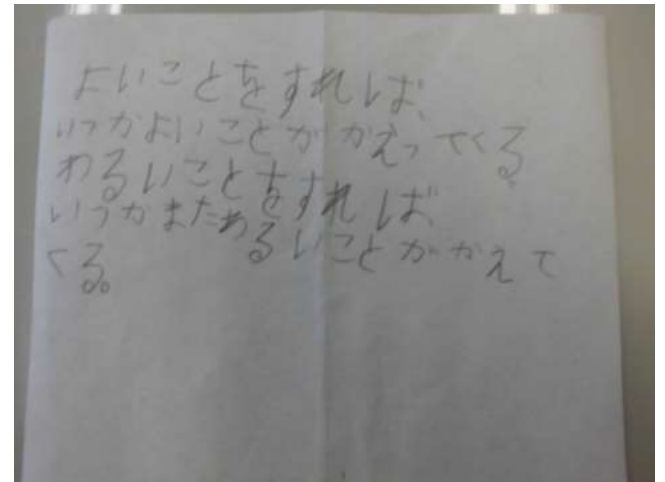 よいことをすれば、
いつかよいことがかえってくる。
わるいことをすれば、
いつかまたわるいことがかえて
くる。